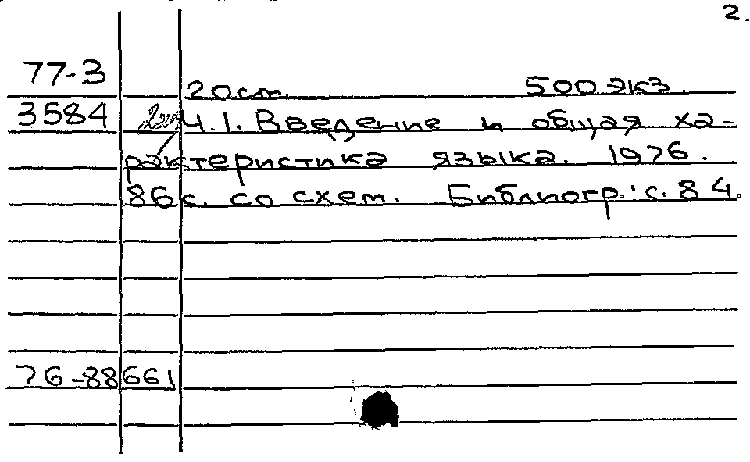 2.
77-3 20см. 500 экз.
3584 Ч.1. Введение и общая ха-
рактеристика языка. 1976.
86 с. со схем. Библиогр.: с. 84.
76-88661